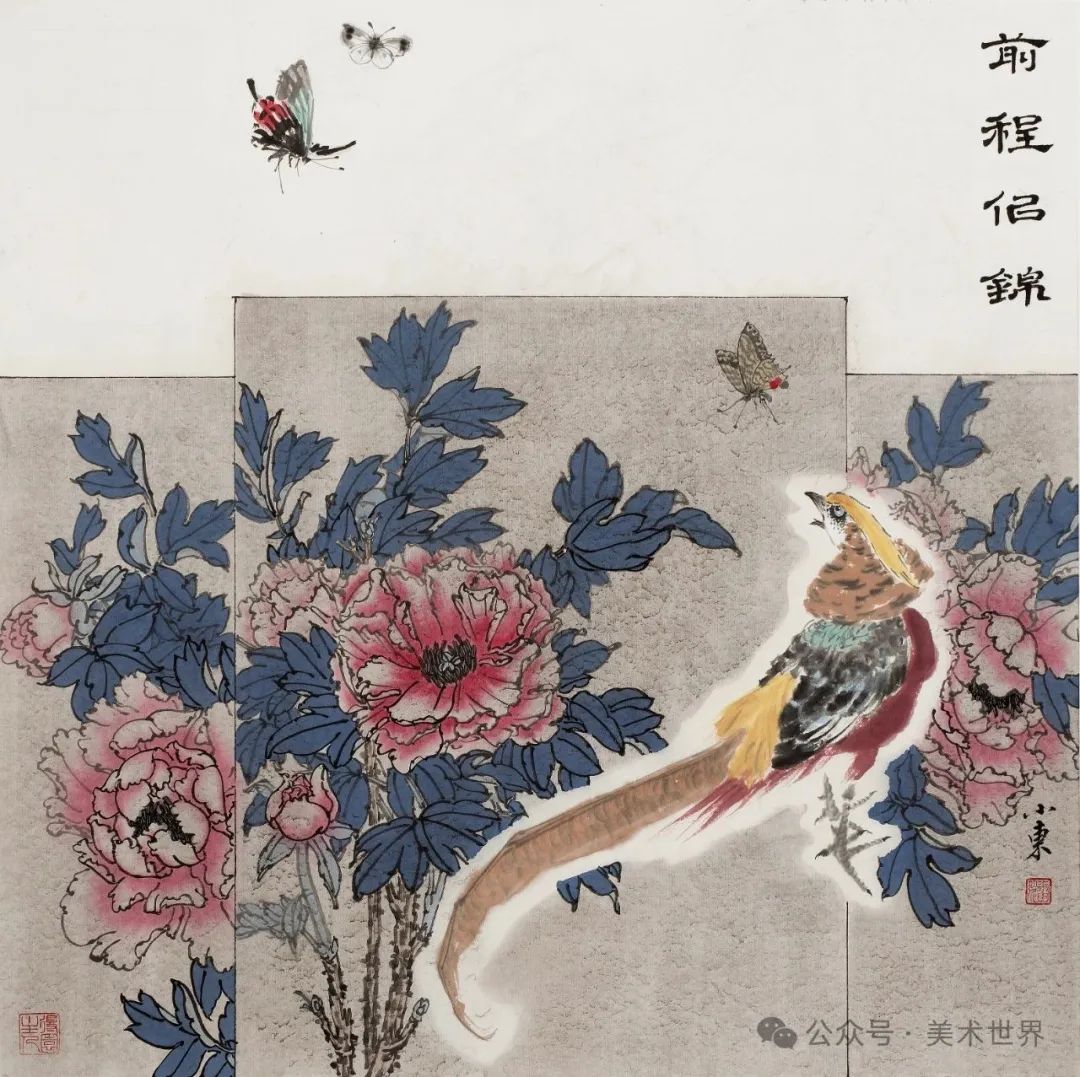 前程佀錦
小東
公众号 · 美术世界